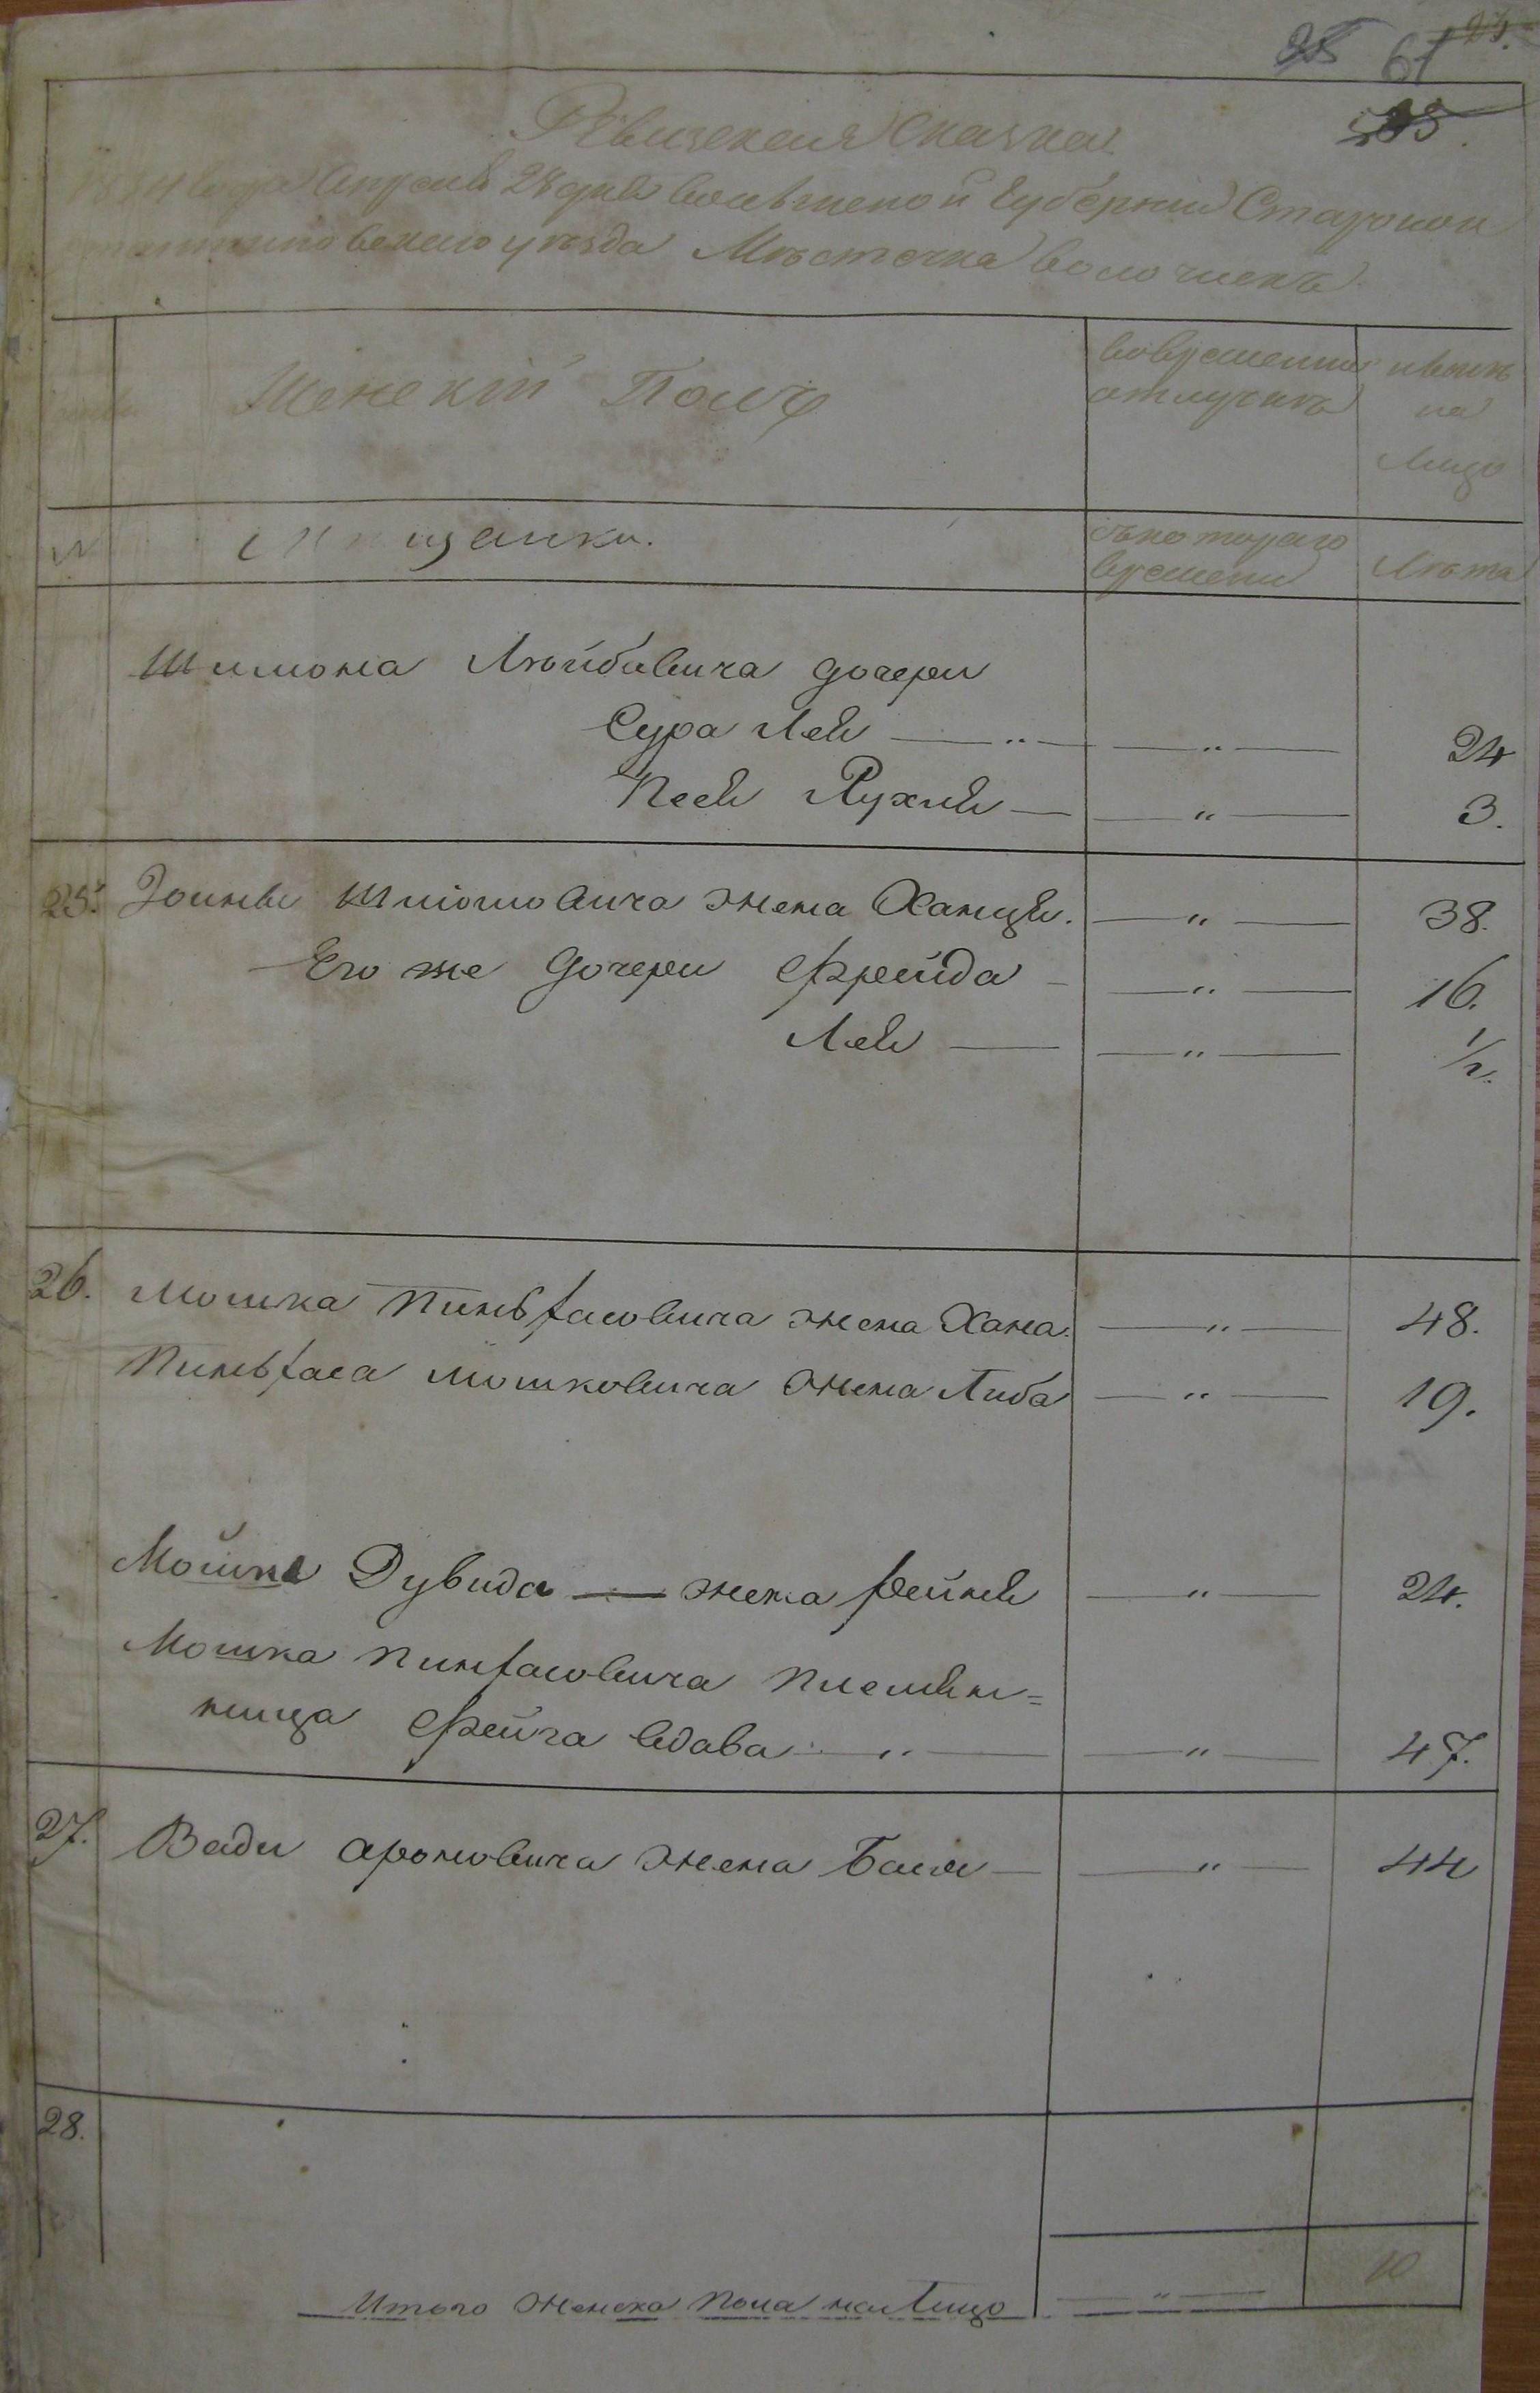 61
Ревизская Сказка
1834 года Апреля 28 дня Волынской Губернии Старокон
стантиновского уезда Мѣстечка Волочискъ
Женскій Полъ
вовременной отлучкѣ
нынѣ на Лицо
№ Мѣщанки.
Съкотораго времени
Лѣта
Шмиона Лейбовича дочери
Сура Лея — „ — — „ — 24
Песя Рухля — — „ — 3.
25. Зонвы Шлiомовича жена Ханця. — „ — 38.
Его же дочери Фрейда — — „ — 16.
Лея — — „ — 1/2.
26. Мошка Пиньфасовича жена Хана. — „ — 48.
Пиньфаса Мошковича жена Либа — „ — 19.
Мошка Дувида — жена фейня — „ — 24.
Мошка Пинфасовича племян=
ница Фейга вдова — „ — — „ — 47.
27. Вади Ароновича жена Бася — — „ — 44
28.
Итого женска пола на Лицо — „ — 10